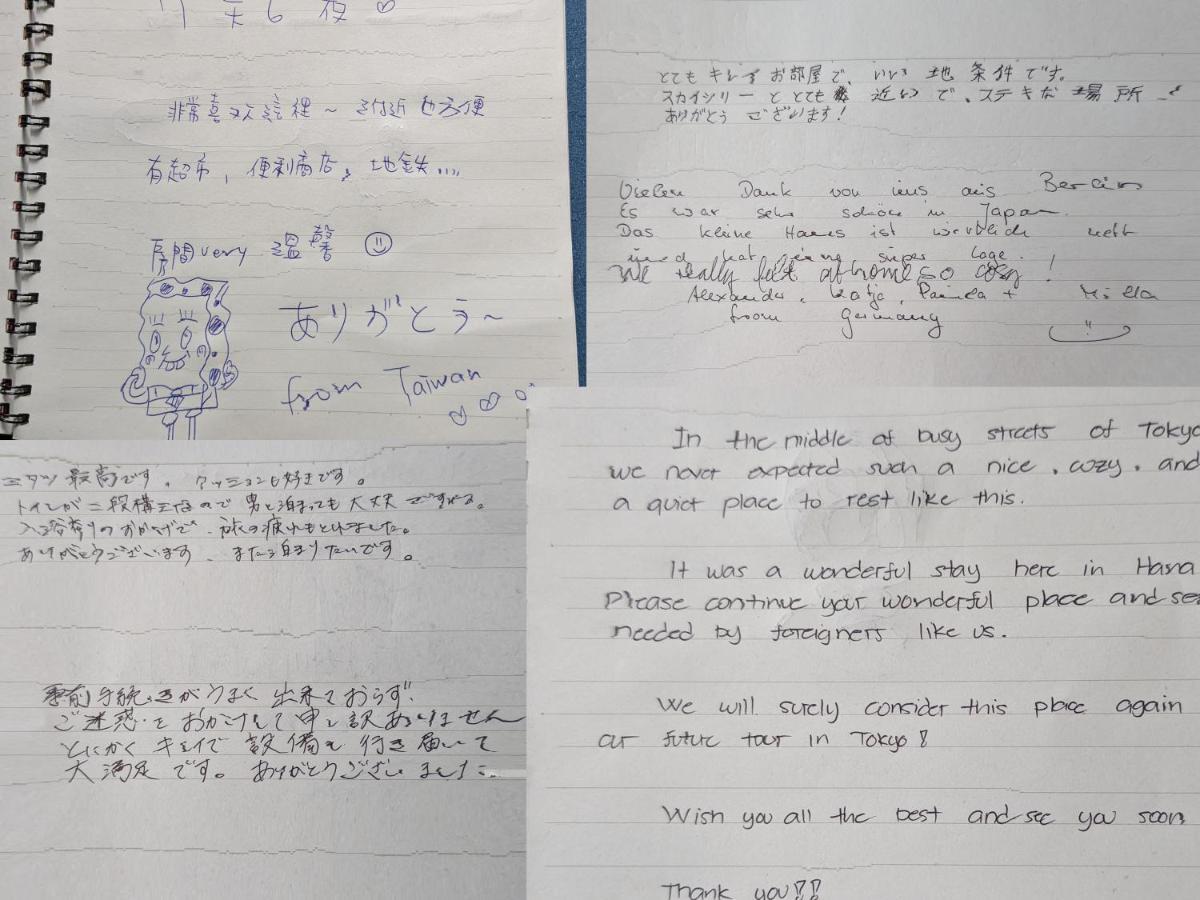 天 6 夜
非常喜歡這裡~ 附近也方便
有超市, 便利商店, 地鉄....
房間very 溫馨
ありがとう~
from Taiwan
とても キレイ お部屋で、いい 地 条件です。
スカイツリー と とても 近いで、ステキな 場所
ありがとう ございます!
Vielen Dank von uns aus Berlin
Es war sehr schön in Japan.
Das kleine Haus ist wirklich nett
und hat eine super Lage.
We really felt at home so cosy!
Alexander, Katja, Paula + Milla
from Germany
最高です。クッションも好きです。
トイレが二段構えなので 男と泊まっても大丈夫
入浴剤のおかげで、旅の疲れもとれました。
ありがとうございます、また泊まりたいです。
事前手続きがうまく出来ておらず、
ご迷惑をおかけして申し訳ありません
とにかくキレイで設備も行き届いて
大満足です。ありがとうございました
In the middle of busy streets of Tokyo
we never expected such a nice, cozy, and
a quiet place to rest like this.
It was a wonderful stay here in Hana
Please continue your wonderful place and
needed by foreigners like us.
We will surely consider this place again
our future tour in Tokyo!
Wish you all the best and see you soon
Thank you!!